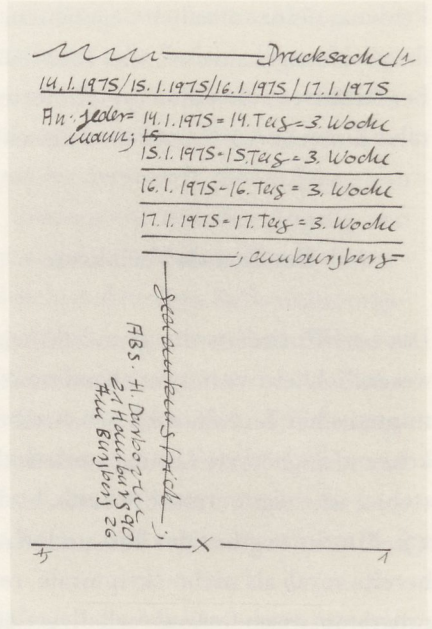 Drucksache/1
14.1.1975/15.1.1975/16.1.1975/17.1.1975
An: jeder= 14.1.1975=14.Tag=3.Woche
mann; 15
15.1.1975=15.Tag=3.Woche
16.1.1975=16.Tag=3.Woche
17.1.1975=17.Tag=3.Woche
; amburgberg=
Gedankenstrich;
ABS. H. Darboven,
21 Hamburg 90
Am Burgberg 26
+5 X 1